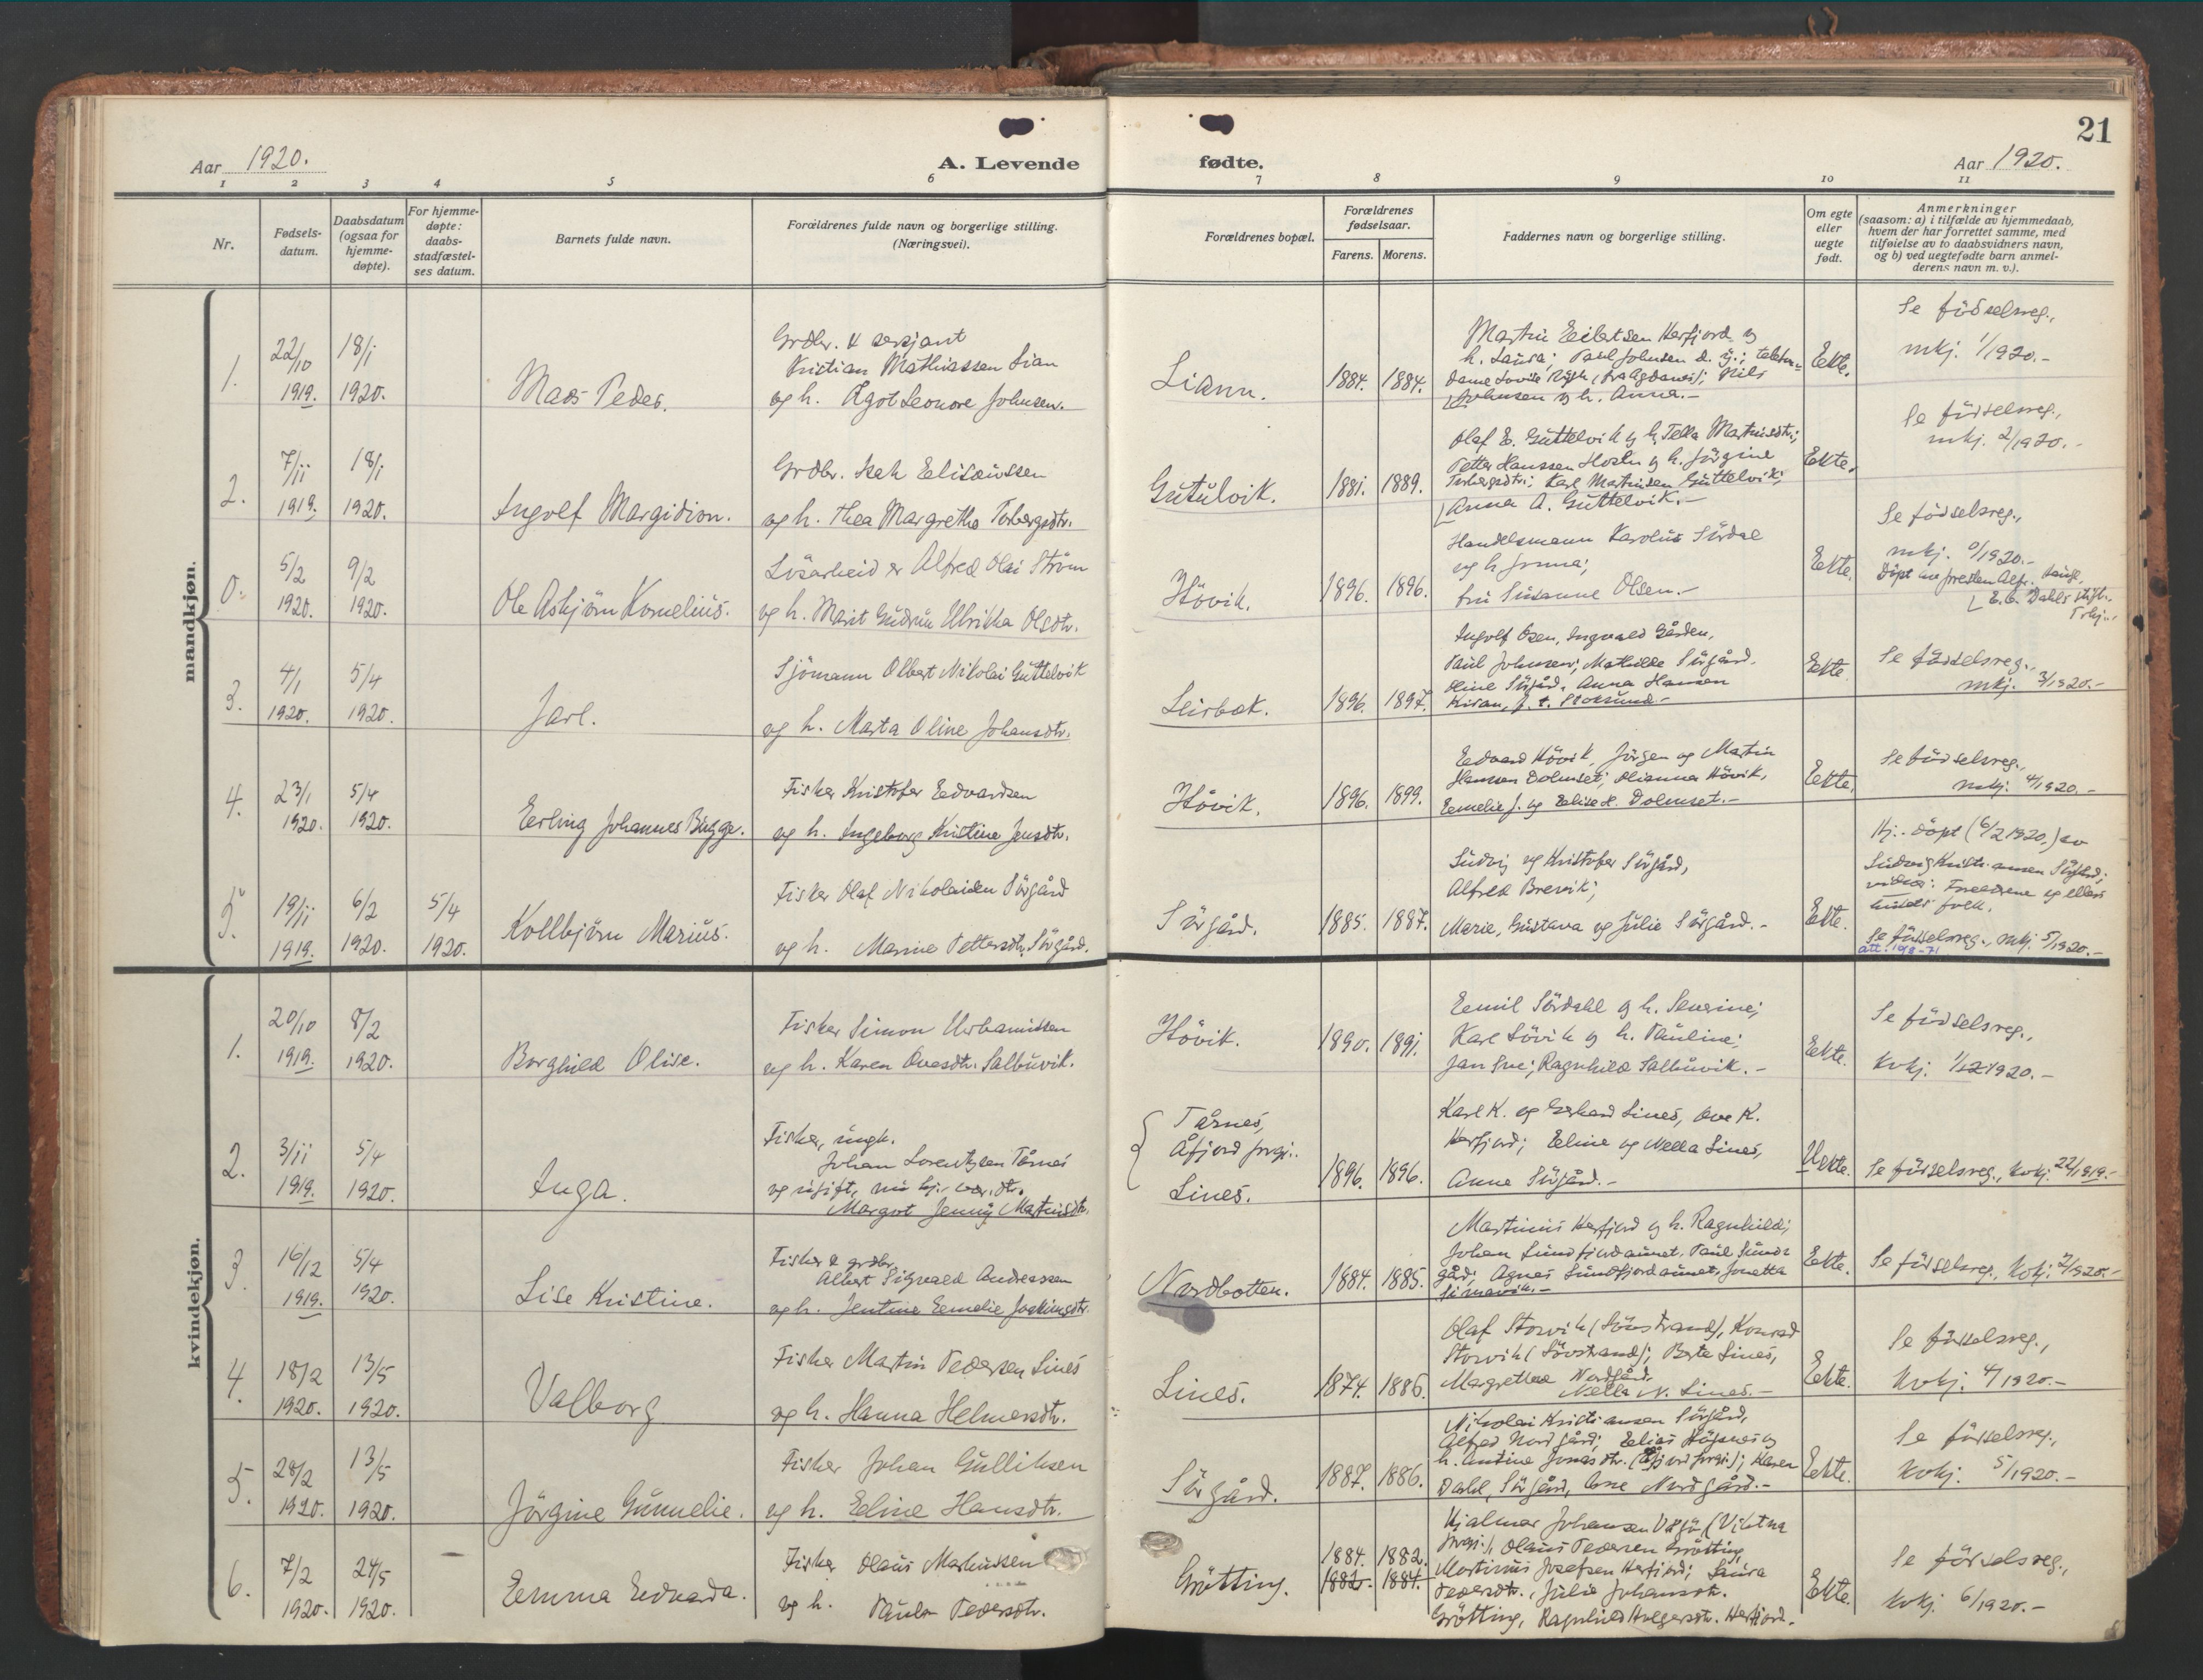 21
Aar 1920.
A. Levende fødte.
Aar 1920.
1 2 3 4 5 6 7 8 9 10 11
Nr.
Fødsels-
datum.
Daabsdatum
(ogsaa for
hjemme-
døpte).
For hjemme-
døpte:
daabs-
stadfæstel-
ses datum.
Barnets fulde navn.
Forældrenes fulde navn og borgerlige stilling.
(Næringsvei).
Forældrenes bopæl.
Forældrenes
fødselsaar.
Farens. Morens.
Faddernes navn og borgerlige stilling.
Om egte
eller
uegte
født.
Anmerkninger
(saasom: a) i tilfælde av hjemmedaab,
hvem der har forrettet samme, med
tilføielse av to daabsvidners navn,
og b) ved uegtefødte barn anmel-
derens navn m. v.).
mandkjøn.
1.
22/10
1919.
18/1
1920.
Mads Peder.
Grdbr. & sersjant
Kristian Mathiassen Lian
og h. Ågot Leonore Johnsen.
Liann.
1884. 1884.
Martin Eilertsen Herfjord og
h. Laura; Paul Johnsen d. y.;
Johnsen og h. Anna.-
Ekte.
Se födselsreg.,
mkj. 1/1920.-
2.
7/11
1919.
18/1
1920.
Ingolf Margidion.
Grdbr. Isak Elisæussen
og h. Thea Margretha Torbergsdtr.
Gutulvik.
1881. 1889.
Olaf E. Guttelvik og h. Tella Martinsdtr;
Petter Hanssen Hosen og h. Jörgine
Torbergsdtr; Karl Martinsen Guttelvik;
Anna A. Guttelvik.-
Ekte.
Se födselsreg.,
mkj. 2/1920.-
0.
5/2
1920.
9/2
1920.
Ole Asbjörn Kornelius.
Lösarbeider Alfred Olai Ström
og h. Marit Gudrun Ulrikka Olsdtr.
Hövik.
1896. 1896.
Handelsmann Karolius Sördal
og h. Jonna;
fru Susanne Olsen.-
Ekte.
Se födselsreg.,
mkj. 0/1920.-
Döpt av presten Alfr.
E. C. Dahls stift.
3.
4/1
1920.
5/4
1920.
Jarl.
Sjömann Olbert Nikolai Guttelvik
og h. Marta Oline Johansdtr.
Leirbæk.
1896. 1897.
Ingolf Osen, Ingvald Gården,
Paul Johnsen; Mathilde Sörgård,
Oline Sörgård, Anna Hansen
Kiran, p. t. Stoksund.-
Ekte.
Se födselsreg.,
mkj. 3/1920.-
4.
23/1
1920.
5/4
1920.
Erling Johannes Bugge.
Fisker Kristofer Edvardsen
og h. Ingeborg Kristine Jensdtr.
Hövik.
1896. 1899.
Edvard Hövik, Jörgen og Martin
Hansen Dolmset; Olianna Hövik,
Emelie J. og Elise H. Dolmset.-
Ekte.
Se födselsreg.,
mkj. 4/1920.-
5.
19/11
1919.
6/2
1920.
5/4
1920.
Kolbjörn Marius.
Fisker Olaf Nikolaisen Sörgård
og h. Marine Pettersdtr. Sörgård.
Sörgård.
1885. 1887.
Ludvig og Kristofer Sörgård,
Alfred Brevik;
Marie, Gustava og Julie Sörgård.-
Ekte.
Hj.-döpt (6/2 1920.) av
Ludvig Kristiansen Sörgård;
vidner: Foreldrene og ellers
husets folk.
Se födselsreg., mkj. 5/1920.-
att. 19/8-71
kvindekjøn.
1.
20/10
1919.
8/2
1920.
Borghild Olise.
Fisker Simon Urbanussen
og h. Karen Ovesdtr. Salbuvik.
Hövik.
1890. 1891.
Emil Sördahl og h. Severine;
Karl Lövik og h. Pauline;
Jan Sve; Ragnhild Salbuvik.-
Ekte.
Se födselsreg.,
kvkj. 1/1920.-
2.
3/11
1919.
5/4
1920.
Inga.
Fisker, ungk.
Johan Lorentzsen Tårnes
og ugift,
Margot Jenny Martinsdtr.
Tårnes,
Åfjord prgj.
Lines.
1896. 1896.
Karl K. og Gerhard Lines, Ove K.
Herfjord; Eline og Nella Lines,
Anna Sörgård.-
Uekte.
Se födselsreg., kvkj. 22/1919.-
3.
16/12
1919.
5/4
1920.
Lise Kristine.
Fisker & grdbr.
Albert Sigvald Andreassen
og h. Jentine Emelie Joakimsdtr.
Nordbotten.
1884. 1885.
Martinus Herfjord og h. Ragnhild;
Johan Sundfjordaunet, Paul Sund-
gård; Agnes Sundfjordaunet, Jonetta
Ekte.
Se födselsreg., kvkj. 2/1920.-
4.
18/2
1920.
13/5
1920.
Valborg
Fisker Martin Pedersen Lines
og h. Hanna Helmersdtr.
Lines.
1874. 1886.
Olaf Storvik (Sörstrand), Konrad
Storvik (Sörstrand); Berte Lines,
Margrethe Nordgård,
Nella N. Lines.-
Ekte.
Se födselsreg.,
kvkj. 4/1920.-
5.
28/2
1920.
13/5
1920.
Jörgine Gunnelie.
Fisker Johan Gulliksen
og h. Eline Hansdtr.
Sörgård.
1887. 1886.
Nikolai Kristiansen Sörgård,
Alfred Nordgård; Elias Högsnes og
h. Antine Jonasdtr. (Åfjord prgj.); Karen
Dahl, Sörgård, Åse Nordgård.-
Ekte.
Se födselsreg.,
kvkj. 5/1920.-
6.
7/2
1920.
24/5
1920.
Emma Edvarda.
Fisker Olaus Markussen
og h. Paula Pedersdtr.
Grötting.
1884. 1882.
1882. 1884.
Hjalmar Johansen Vågö (Vikna
prgj.), Olaus Pedersen Grötting,
Martinus Josefsen Herfjord; Laura
Pedersdtr., Julie Johansdtr.
Grötting, Ragnhild Holgersdtr. Herfjord.-
Ekte.
Se födselsreg.,
kvkj. 6/1920.-